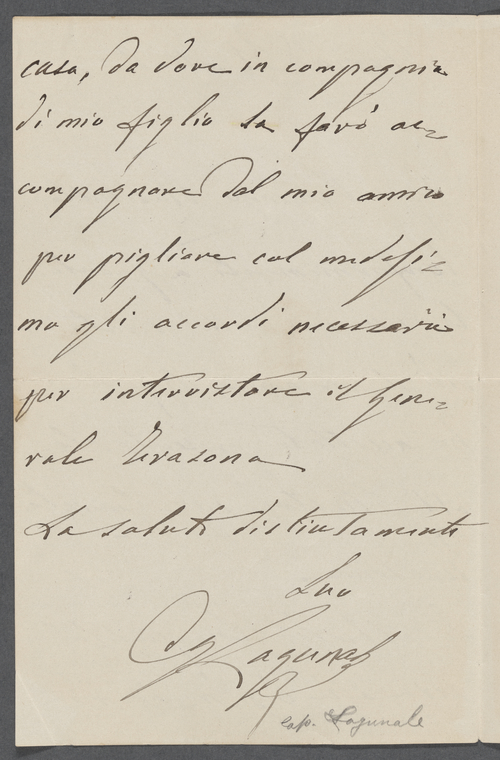 casa, da dove in compagnia
di mio figlio la farò ac-
compagnare dal mio amico
per pigliare col medesi-
mo gli accordi necessarii
per intervistare il Gene-
rale
La saluto distintamente
Suo
Lagunale
cap. Lagunale